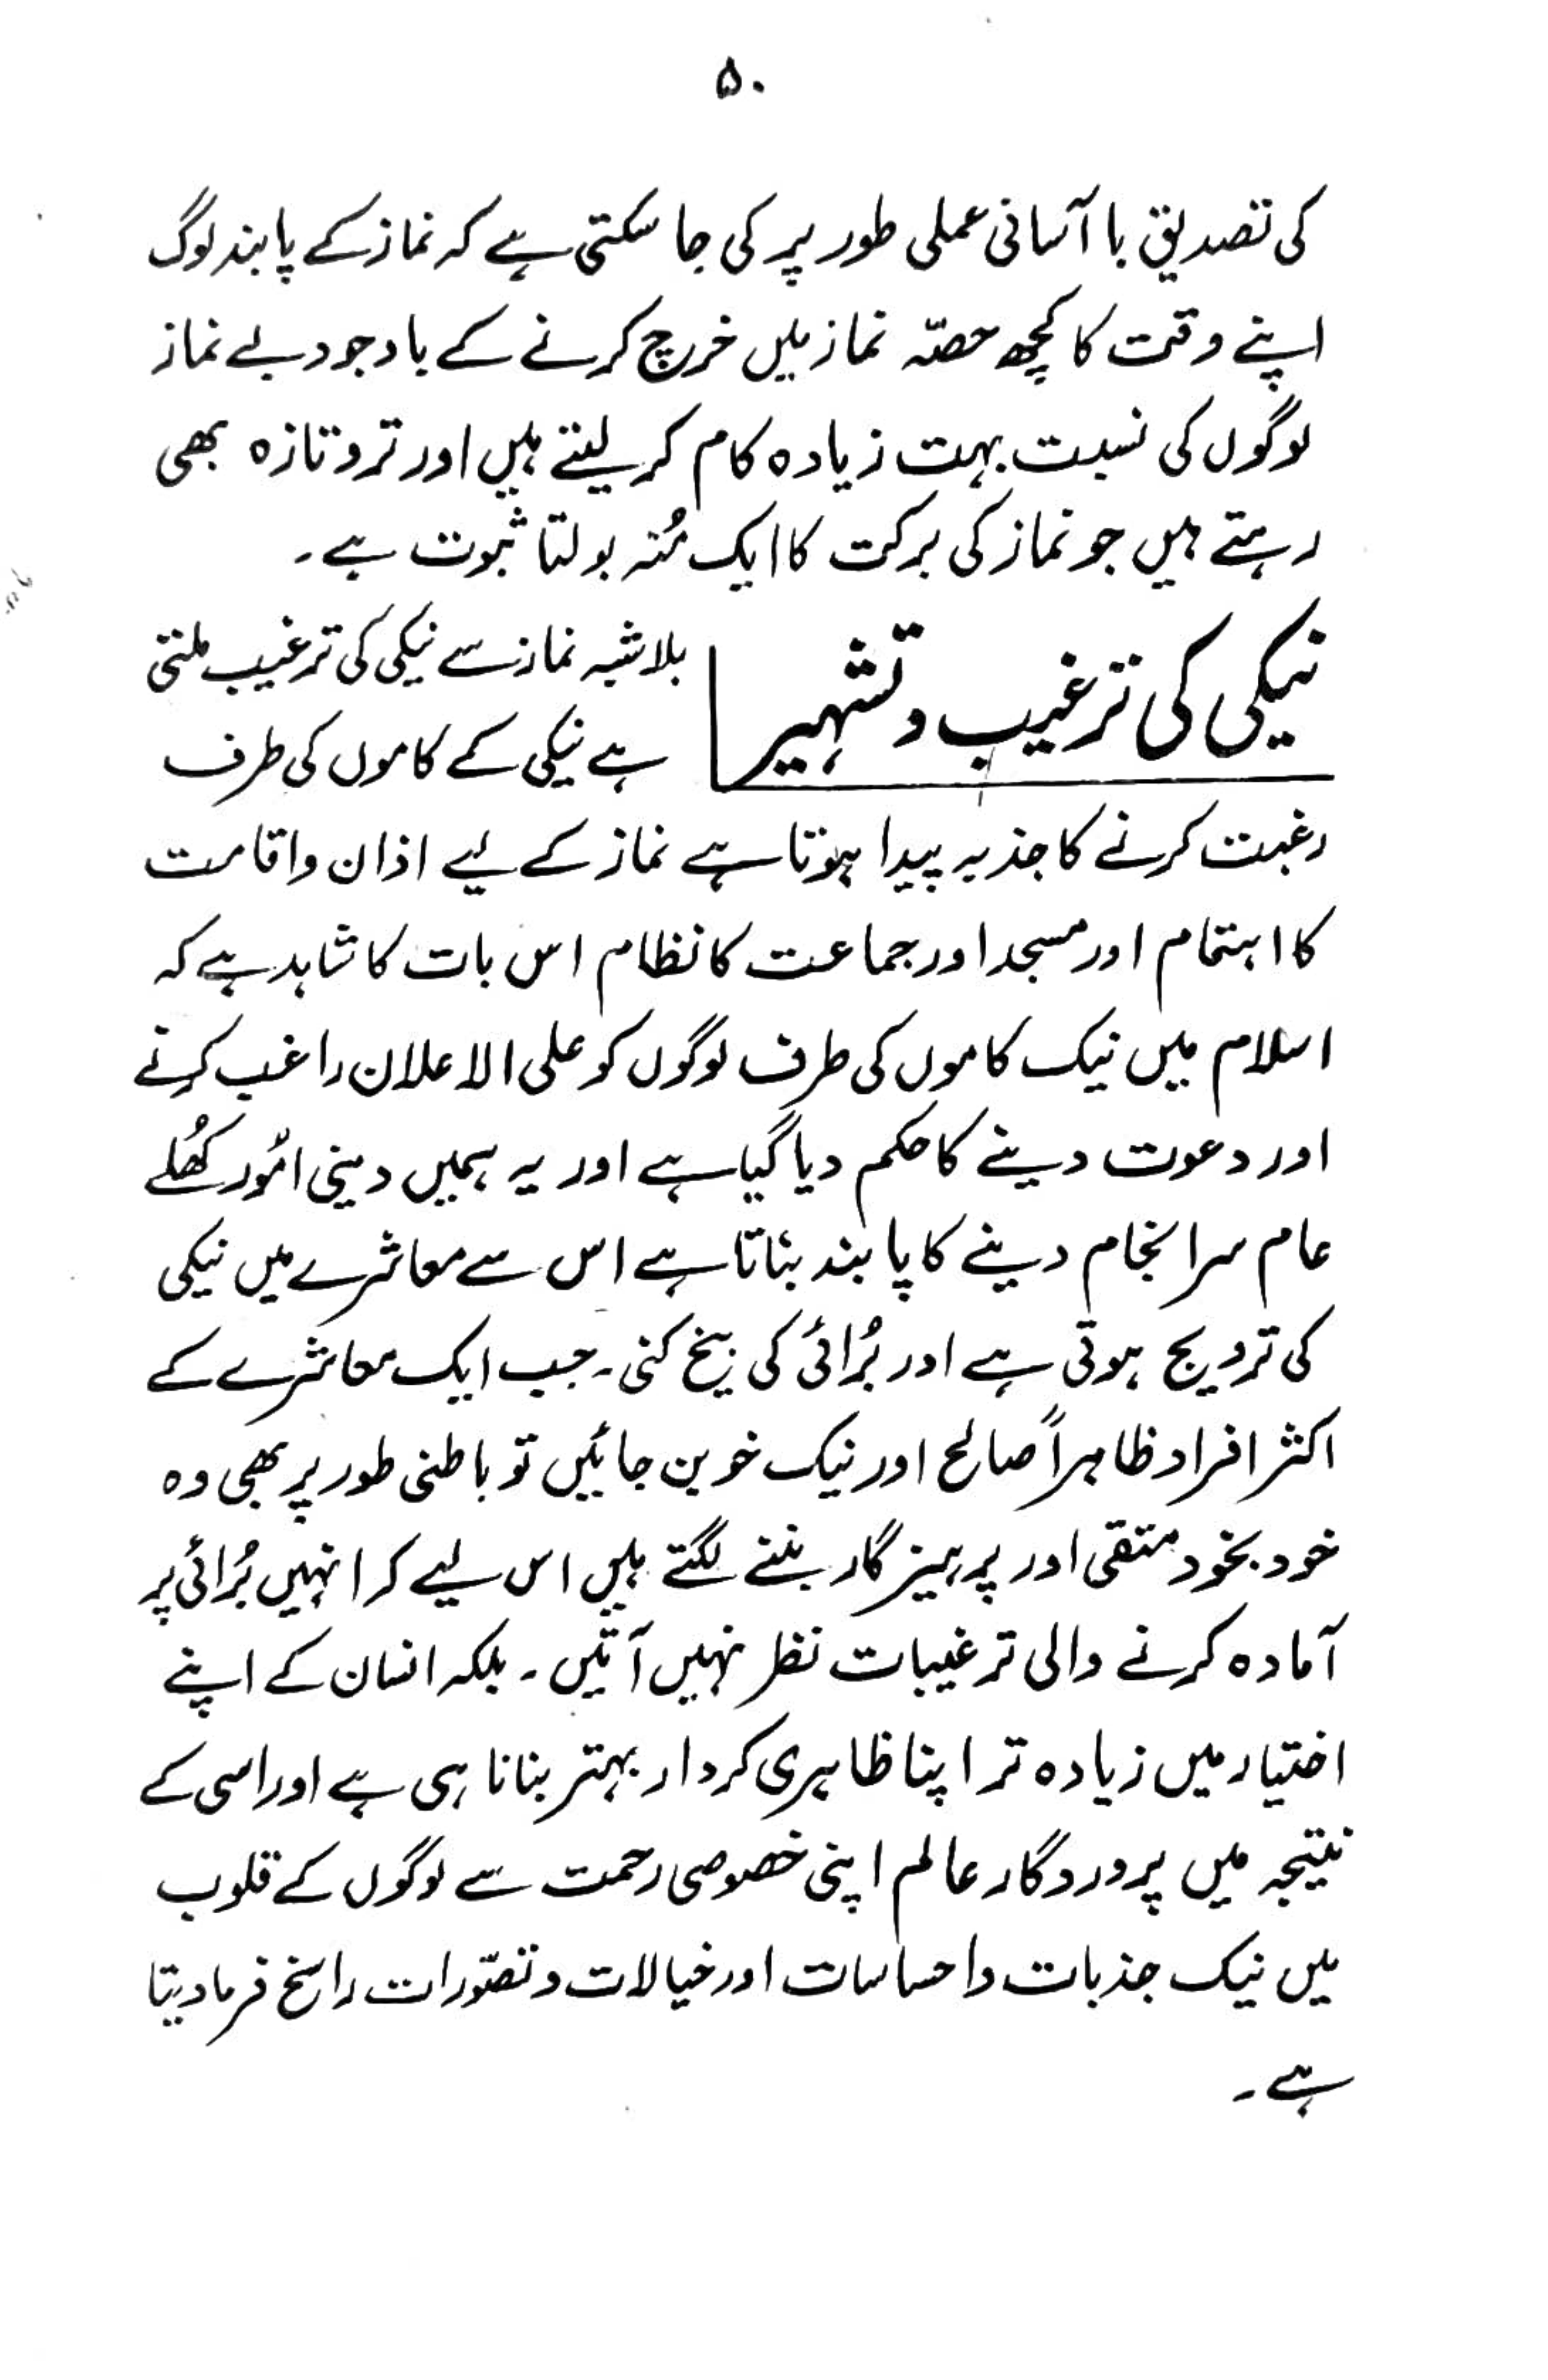 ۵۰
کی تصدیق با آسانی عملی طور پر کی جا سکتی ہے کہ نماز کے پابند لوگ
اپنے وقت کا کچھ حصّہ نماز میں خرچ کرنے کے باوجود بے نماز
لوگوں کی نسبت بہت زیادہ کام کر لیتے ہیں اور تروتازہ بھی
رہتے ہیں جو نماز کی برکت کا ایک مُنہ بولتا ثبوت ہے۔
نیکی کی ترغیب و تشہیر
بلاشبہ نماز سے نیکی کی ترغیب ملتی
ہے نیکی کے کاموں کی طرف
رغبت کرنے کا جذبہ پیدا ہوتا ہے نماز کے لیے اذان واقامت
کا اہتمام اور مسجد اور جماعت کا نظام اس بات کا شاہد ہے کہ
اسلام میں نیک کاموں کی طرف لوگوں کو علی الاعلان راغب کرنے
اور دعوت دینے کا حکم دیا گیا ہے اور یہ ہمیں دینی امُور کھُلے
عام سرانجام دینے کا پابند بناتا ہے اس سے معاشرے میں نیکی
کی ترویج ہوتی ہے اور بُرائی کی بیخ کنی۔ جب ایک معاشرے کے
اکثر افراد ظاہراً صالح اور نیک خو بن جائیں تو باطنی طور پر بھی وہ
خود بخود متقی اور پرہیزگار بننے لگتے ہیں اس لیے کہ انہیں بُرائی پر
آمادہ کرنے والی ترغیبات نظر نہیں آتیں۔ بلکہ انسان کے اپنے
اختیار میں زیادہ تر اپنا ظاہری کردار بہتر بنانا ہی ہے اور اسی کے
نتیجہ میں پروردگار عالم اپنی خصوصی رحمت سے لوگوں کے قلوب
میں نیک جذبات واحساسات اور خیالات و تصّورات راسخ فرما دیتا
ہے۔